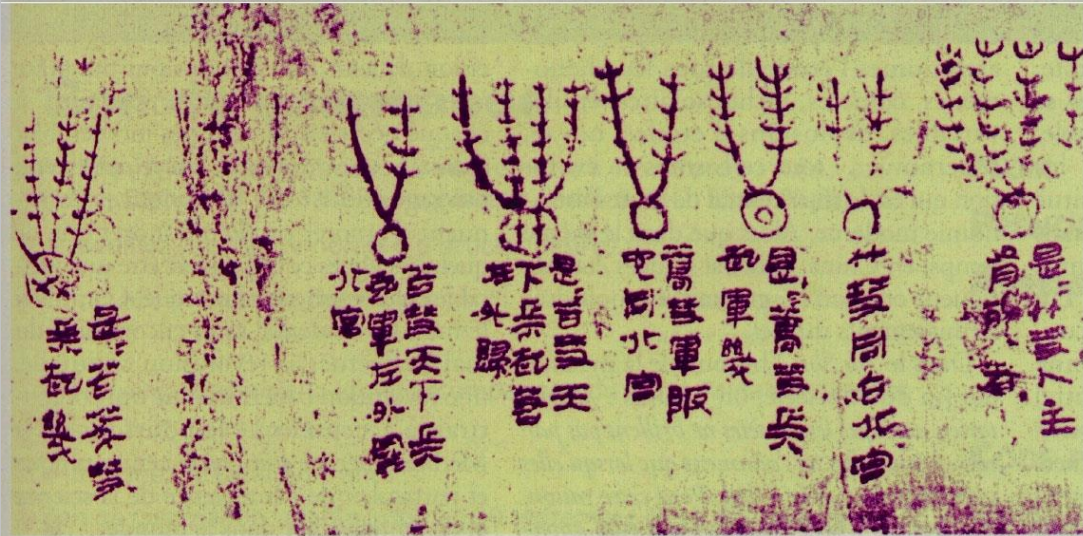 是〻竹彗人主
有死者
竹彗同占北宮
是〻蒿彗兵
起軍幾
蒿彗軍阪
它同北宮
是〻苫彗天
下兵起若
在外歸
苫彗天下兵
起軍在外罷
北宮
是〻彗
兵起幾